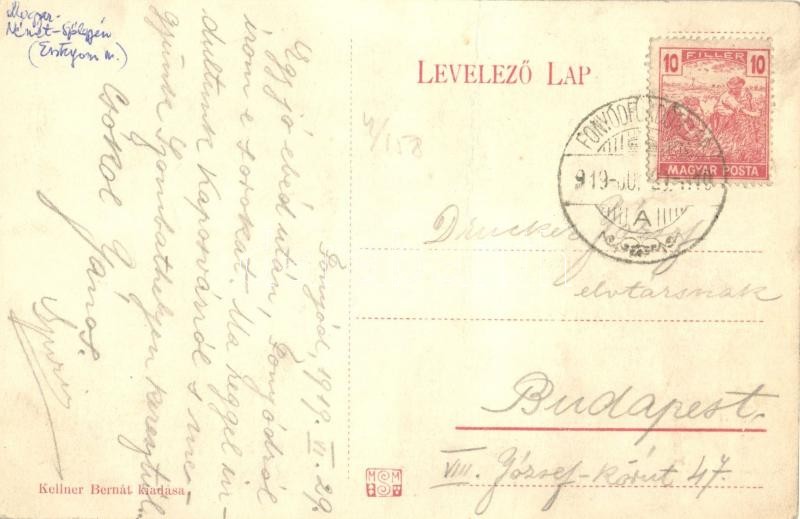 Magyar-
Német-Szölgyén
(Esztergom m.)
LEVELEZŐ LAP
10 FILLÉR 10
MAGYAR POSTA
FONYÓDFÜRDŐ
919
A
4/158
Fonyód, 1919. VI. 29.
Egy jó ebéd után, Fonyódról
irom e sorokat. Ma reggel in-
dultunk Kaposvárról s me-
gyünk Szombathelyen keresztül
Csókol János.
Drucker
elvtársnak
Budapest.
VIII. József-körút 47.
Kellner Bernát kiadása
M M